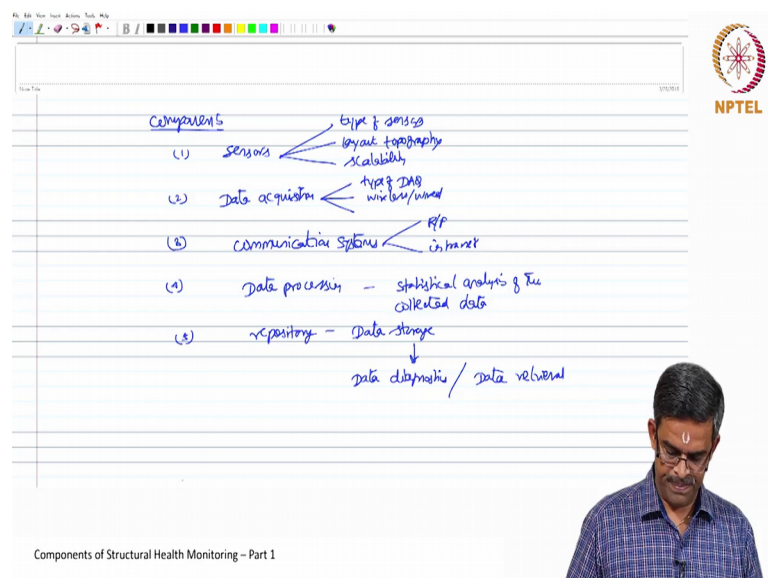 File Edit View Insert Actions Tools Help
B I
Note Title
NPTEL
Components
type of sensors
(1) Sensors layout topography
scalability
type of DAQ
(2) Data acquisition wireless/wired
(3) Communication systems
intranet
(4) Data processing - statistical analysis of the
collected data
(5) repository - Data storage
Data diagnostic / Data retrieval
Components of Structural Health Monitoring – Part 1